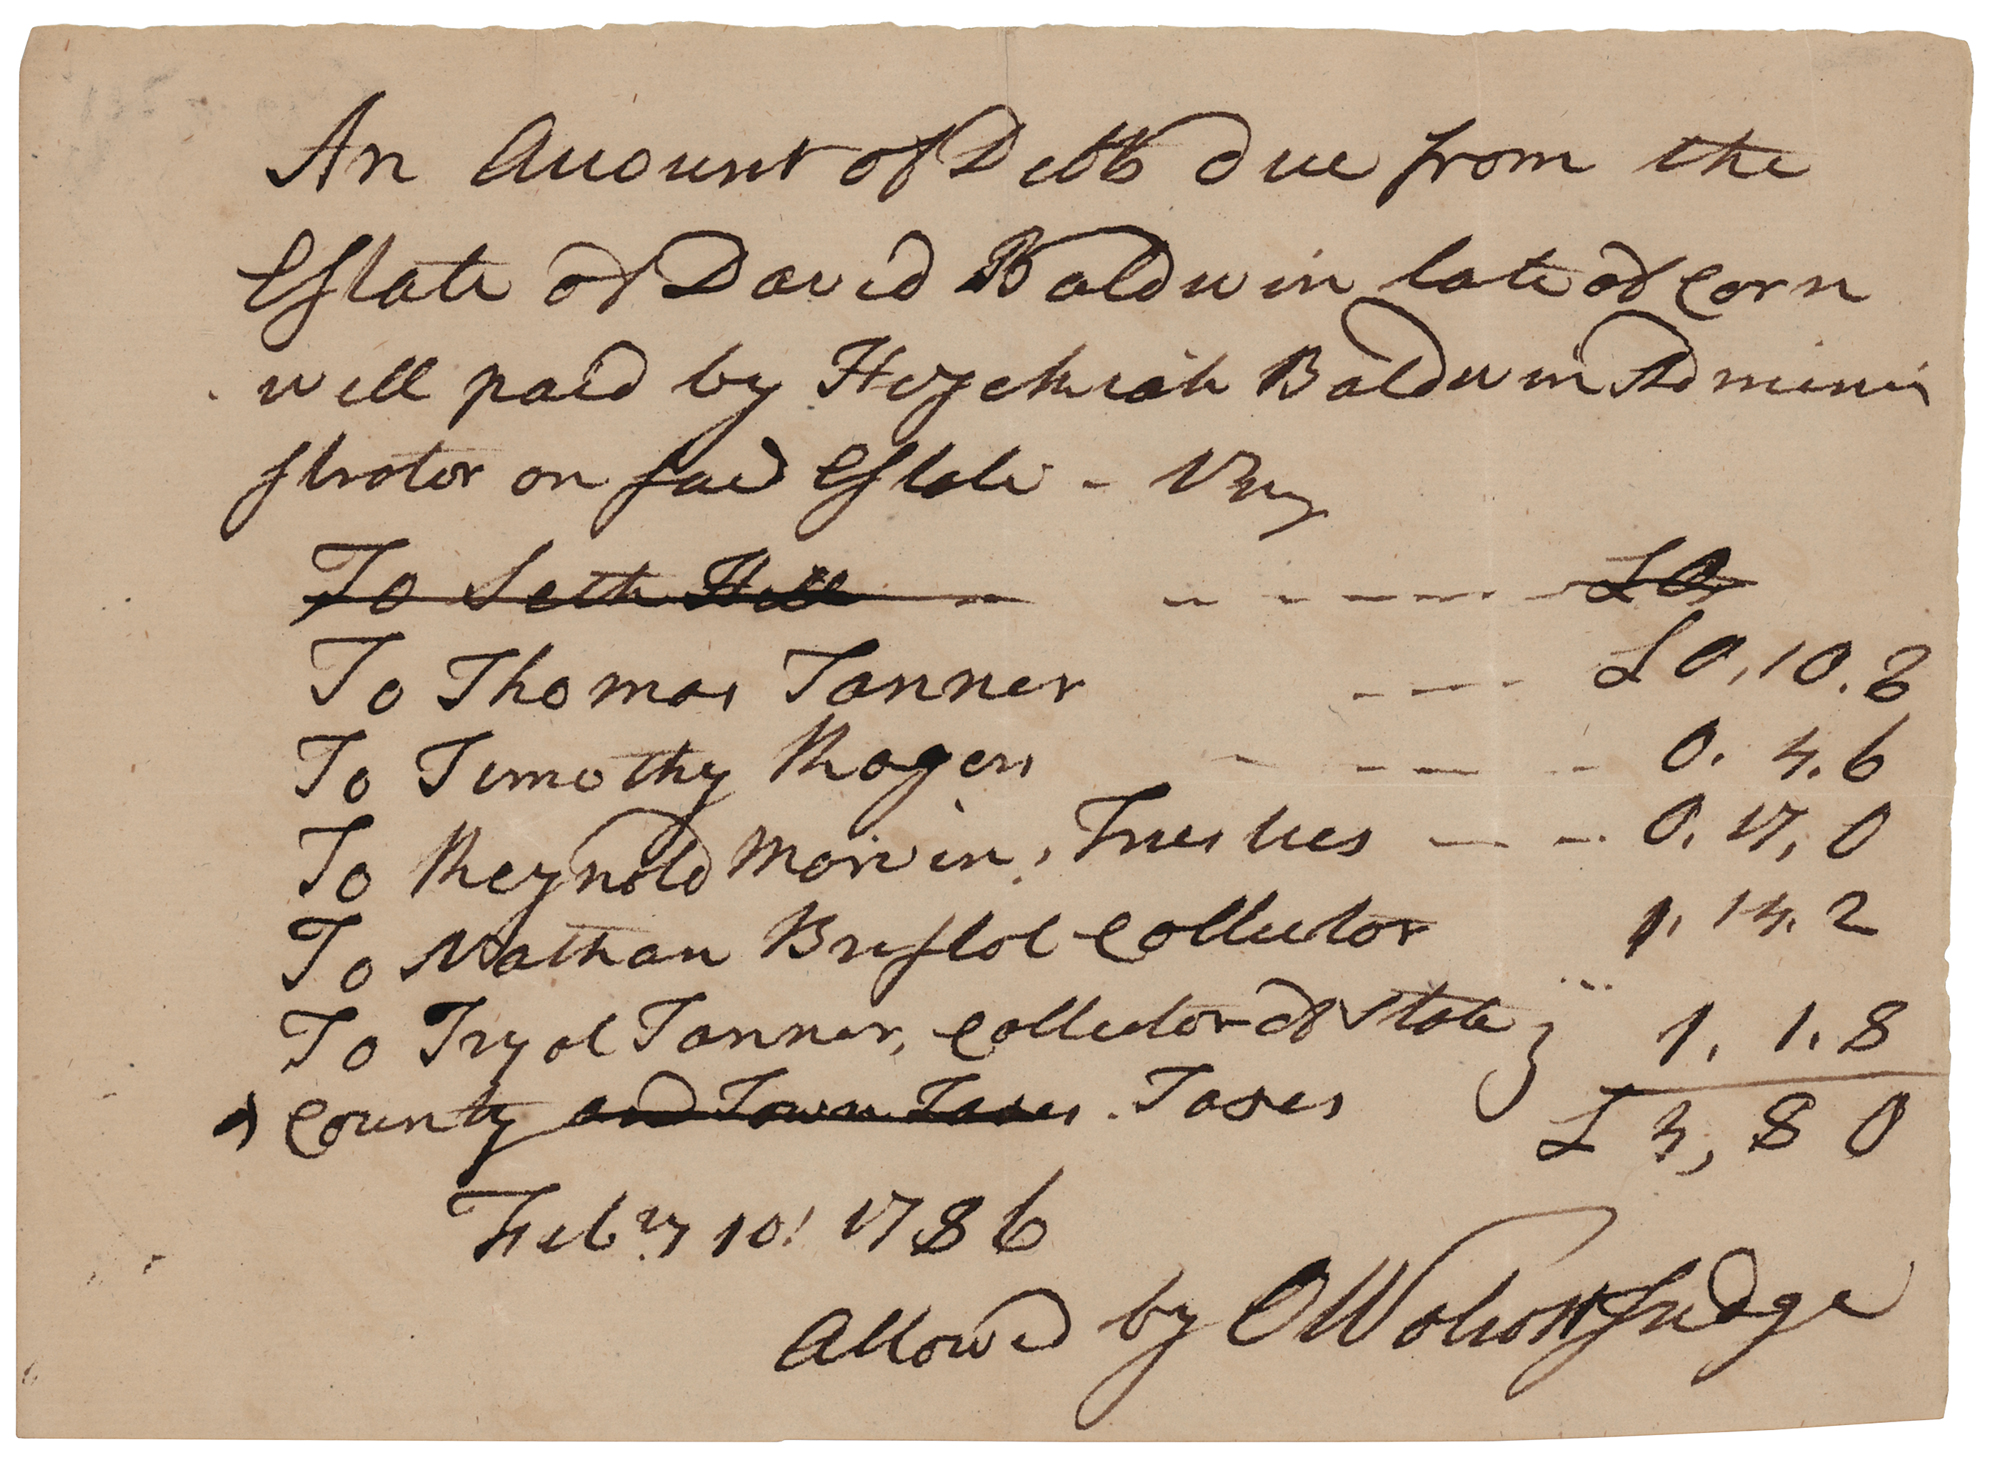 An Account of Debts due from the
Estate of David Baldwin late of Corn
well paid by Hezekiah Baldwin Admini
strator on said Estate - Viz
To Seth Hill - - - - - - - £0
To Thomas Tanner - - - £0, 10. 8
To Timothy Rogers - - - - 0. 4. 6
To Reynold Marvin, Trustees - - - 0. 17, 0
To Nathan Bristol Collector 1. 14. 2
To Tryal Tanner, Collector of State } 1. 1. 8
County and Town Taxes. Taxes £ 3, 8 0
Feb.ry 10! 1786
Allowed by O Wolcott Judge